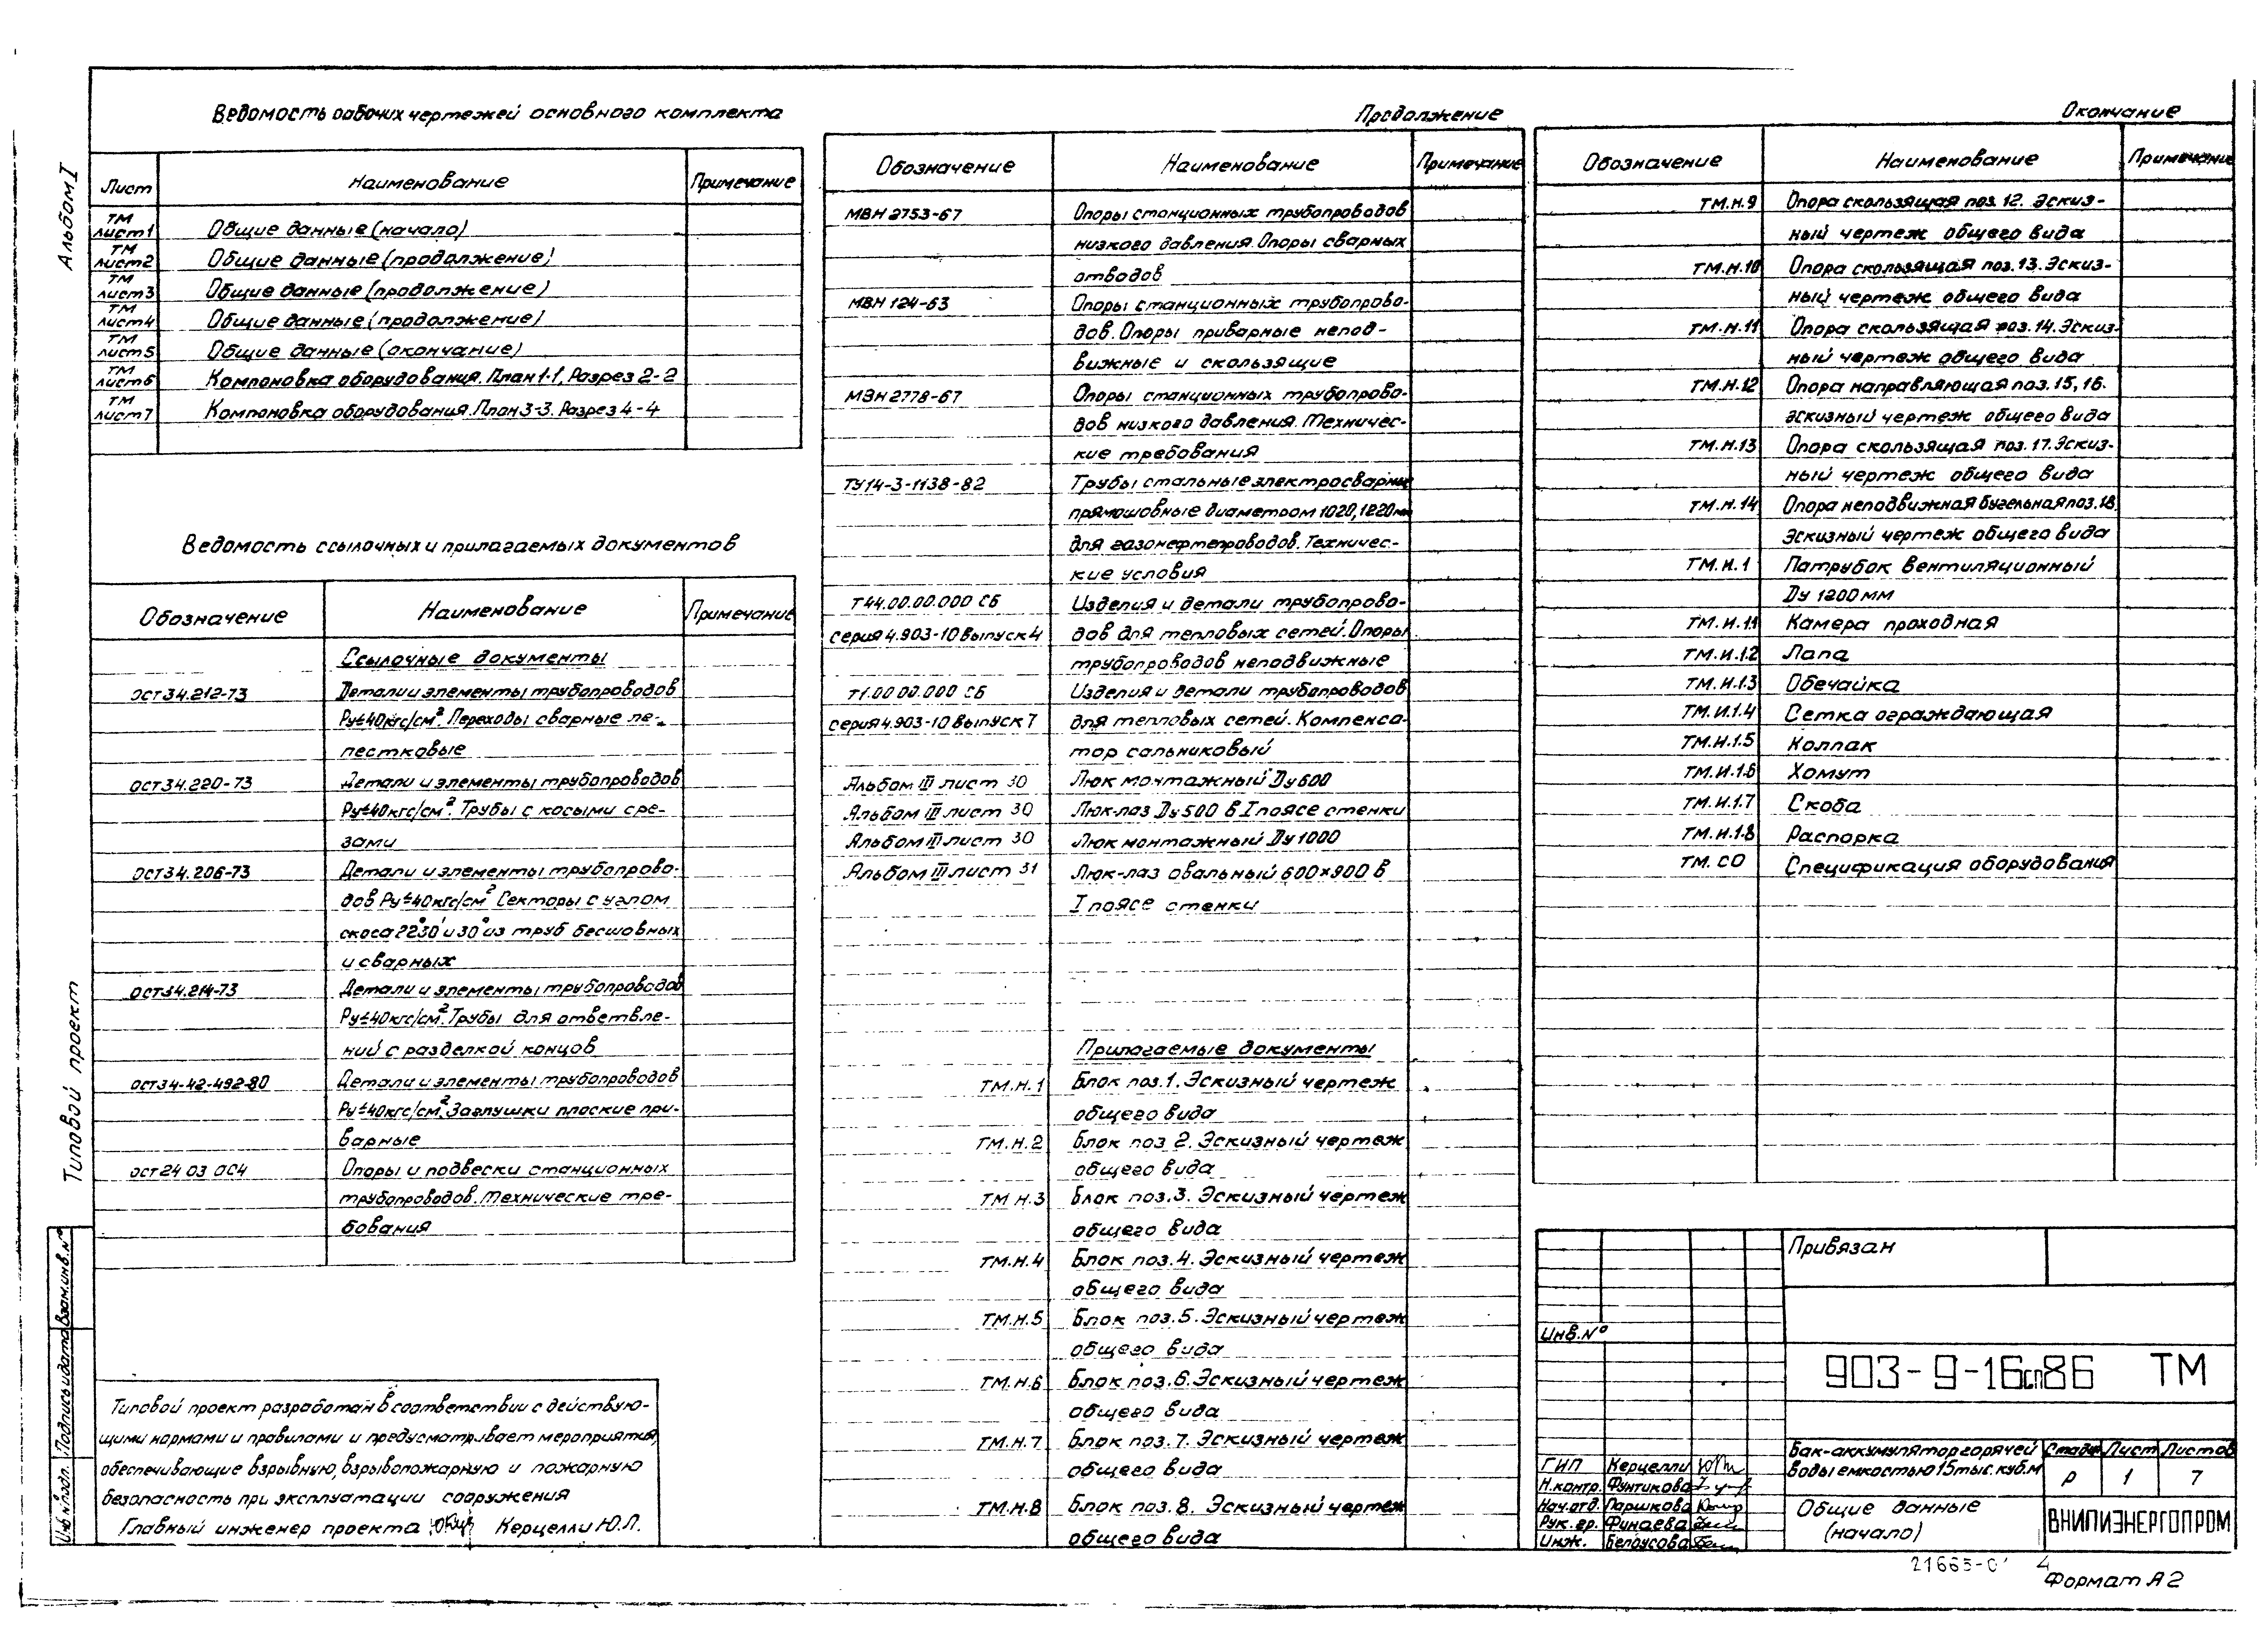 Альбом I
Типовой проект
Ведомость рабочих чертежей основного комплекта
Лист Наименование Примечание
ТМ лист1 Общие данные (начало)
ТМ лист2 Общие данные (продолжение)
ТМ лист3 Общие данные (продолжение)
ТМ лист4 Общие данные (продолжение)
ТМ лист5 Общие данные (окончание)
ТМ лист6 Компоновка оборудования. План 1-1, Разрез 2-2
ТМ лист7 Компоновка оборудования. План 3-3. Разрез 4-4
Ведомость ссылочных и прилагаемых документов
Обозначение Наименование Примечание
Ссылочные документы
ОСТ 34.212-73 Детали и элементы трубопроводов
Ру≤40кгс/см². Переходы сварные ле-
пестковые
ОСТ 34.220-73 Детали и элементы трубопроводов
Ру≤40кгс/см². Трубы с косыми сре-
зами
ОСТ 34.206-73 Детали и элементы трубопрово-
дов Ру≤40кгс/см² Секторы с углом
скоса 22°30' и 30° из труб бесшовных
и сварных
ОСТ 34.214-73 Детали и элементы трубопроводов
Ру≤40кгс/см². Трубы для ответвле-
ний с разделкой концов
ОСТ 34-42-492-80 Детали и элементы трубопроводов
Ру≤40кгс/см². Заглушки плоские при-
варные
ОСТ 24 03 004 Опоры и подвески станционных
трубопроводов. Технические тре-
бования
Типовой проект разработан в соответствии с действую-
щими нормами и правилами и предусматривает мероприятия,
обеспечивающие взрывную, взрывопожарную и пожарную
безопасность при эксплуатации сооружения
Главный инженер проекта Керцелли Ю.Л.
Инв.№подл. Подпись и дата Взам.инв.№
Продолжение
Обозначение Наименование Примечание
МВН 2753-67 Опоры станционных трубопроводов
низкого давления. Опоры сварных
отводов
МВН 124-63 Опоры станционных трубопрово-
дов. Опоры приварные непод-
вижные и скользящие
МВН 2778-67 Опоры станционных трубопрово-
дов низкого давления. Техничес-
кие требования
ТУ 14-3-1138-82 Трубы стальные электросварные
прямошовные диаметром 1020, 1220мм
для газонефтепроводов. Техничес-
кие условия
Т44.00.00.000 СБ Изделия и детали трубопрово-
серия 4.903-10 выпуск 4 дов для тепловых сетей. Опоры
трубопроводов неподвижные
Т1.00 00.000 СБ Изделия и детали трубопроводов
серия 4.903-10 выпуск 7 для тепловых сетей. Компенса-
тор сальниковый
Альбом III лист 30 Люк монтажный Ду 600
Альбом III лист 30 Люк-лаз Ду 500 в I поясе стенки
Альбом III лист 30 Люк монтажный Ду 1000
Альбом III лист 31 Люк-лаз овальный 600×900 в
I поясе стенки
Прилагаемые документы
ТМ.Н.1 Блок поз.1. Эскизный чертеж
общего вида
ТМ.Н.2 Блок поз 2. Эскизный чертеж
общего вида
ТМ Н.3 Блок поз.3. Эскизный чертеж
общего вида
ТМ.Н.4 Блок поз.4. Эскизный чертеж
общего вида
ТМ.Н.5 Блок поз.5. Эскизный чертеж
общего вида
ТМ.Н.6 Блок поз.6. Эскизный чертеж
общего вида
ТМ.Н.7 Блок поз.7. Эскизный чертеж
общего вида
ТМ.Н.8 Блок поз.8. Эскизный чертеж
общего вида
Окончание
Обозначение Наименование Примечание
ТМ.Н.9 Опора скользящая поз.12. Эскиз-
ный чертеж общего вида
ТМ.Н.10 Опора скользящая поз.13. Эскиз-
ный чертеж общего вида
ТМ.Н.11 Опора скользящая поз.14. Эскиз-
ный чертеж общего вида
ТМ.Н.12 Опора направляющая поз.15, 16.
Эскизный чертеж общего вида
ТМ.Н.13 Опора скользящая поз.17. Эскиз-
ный чертеж общего вида
ТМ.Н.14 Опора неподвижная бугельная поз.18.
Эскизный чертеж общего вида
ТМ.И.1 Патрубок вентиляционный
Ду 1200 мм
ТМ.И.1.1 Камера проходная
ТМ.И.1.2 Лапа
ТМ.И.1.3 Обечайка
ТМ.И.1.4 Сетка ограждающая
ТМ.И.1.5 Колпак
ТМ.И.1.6 Хомут
ТМ.И.1.7 Скоба
ТМ.И.1.8 Распорка
ТМ. СО Спецификация оборудования
Привязан
Инв.№
903-9-16сп86 ТМ
ГИП Керцелли
Н.контр. Фунтикова
Нач.отд. Паршкова
Рук.гр. Финаева
Инж. Белоусова
Бак-аккумулятор горячей
воды емкостью 15тыс. куб.м
Стадия Лист Листов
Р 1 7
Общие данные
(начало)
ВНИПИЭНЕРГОПРОМ
21665-0 4
Формат А2